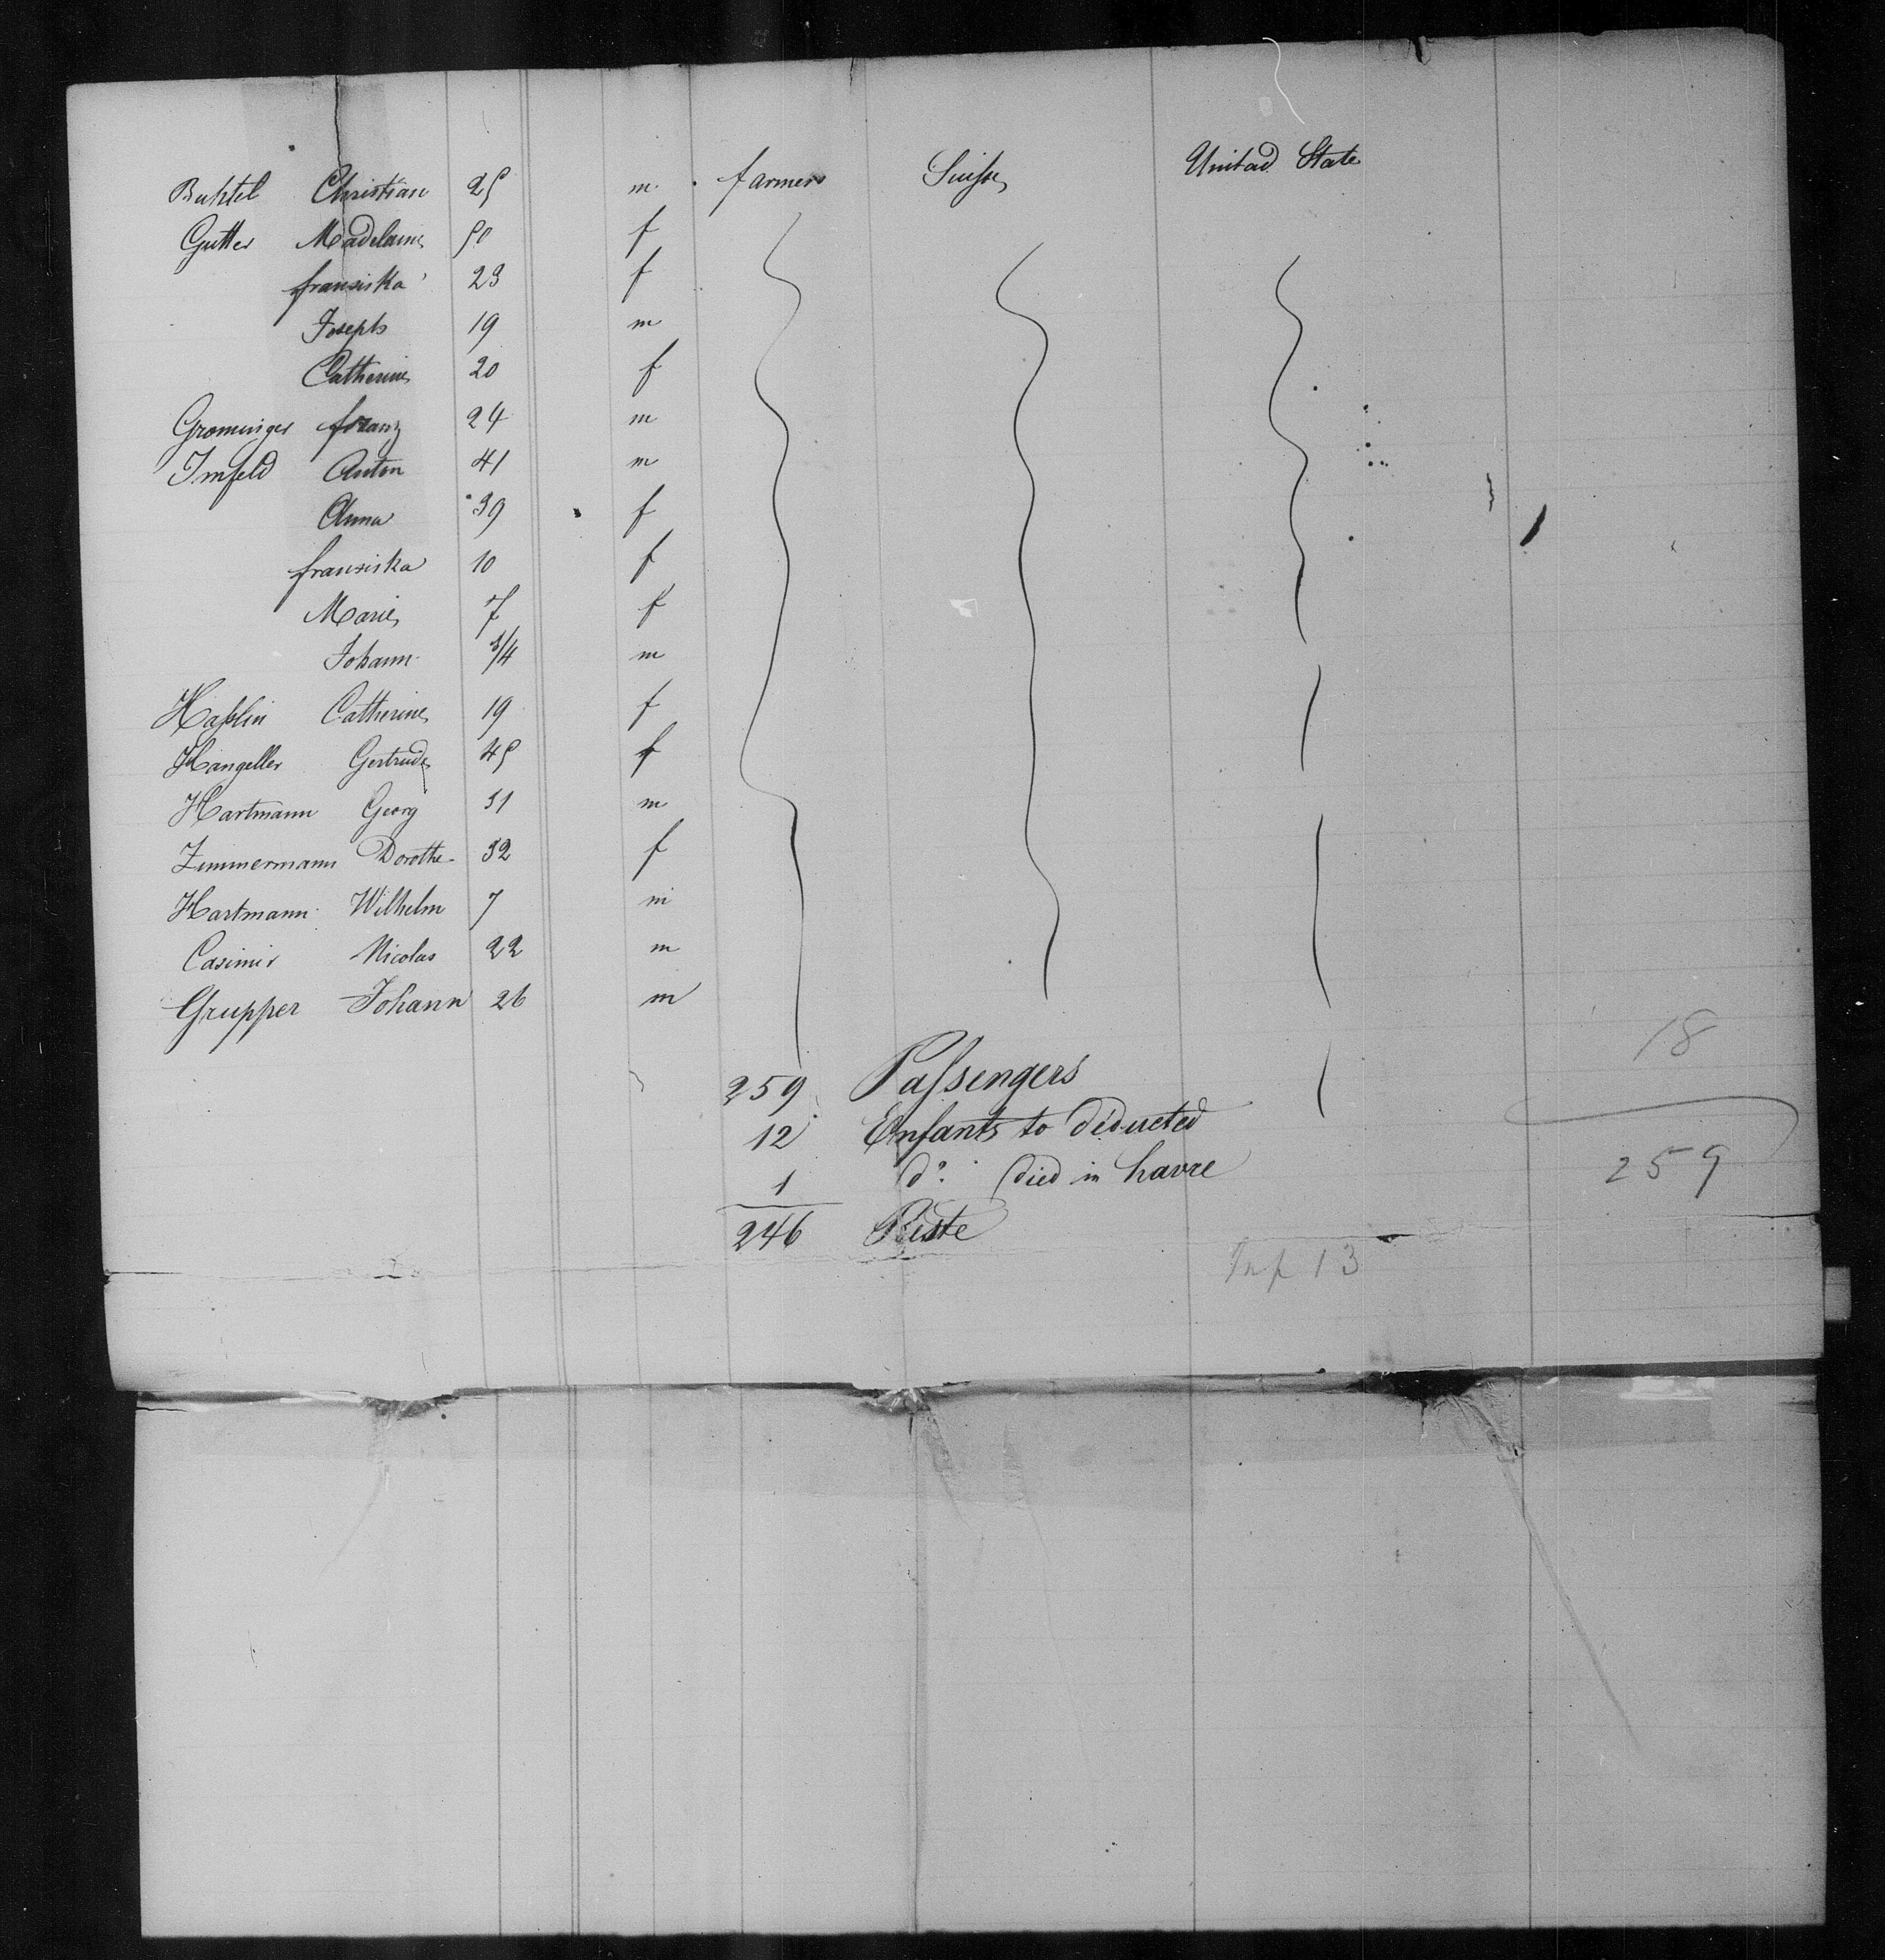 Buhtel Christian 25 m farmers Suisse Unitad State
Gutter Madelaine 50 f
fransiska 23 f
Joseph 19 m
Catherine 20 f
Grominger franz 24 m
Imfeld Anton 41 m
Anna 39 f
fransiska 10 f
Marie 7 f
Johann 3/4 m
Haßlin Catherine 19 f
Hangeller Gertrude 45 f
Hartmann Georg 31 m
Zimmermann Dorothe 32 f
Hartmann Wilhelm 7 m
Casimir Nicolas 22 m
Grupper Johann 26 m
18
259 Passengers
12 Enfants to déducted
1 do. died in havre
259
246 Reste
Inf 13